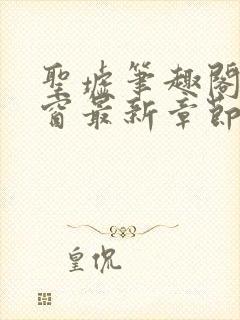 聖墟筆趣閣
窗最新章節
皇侃